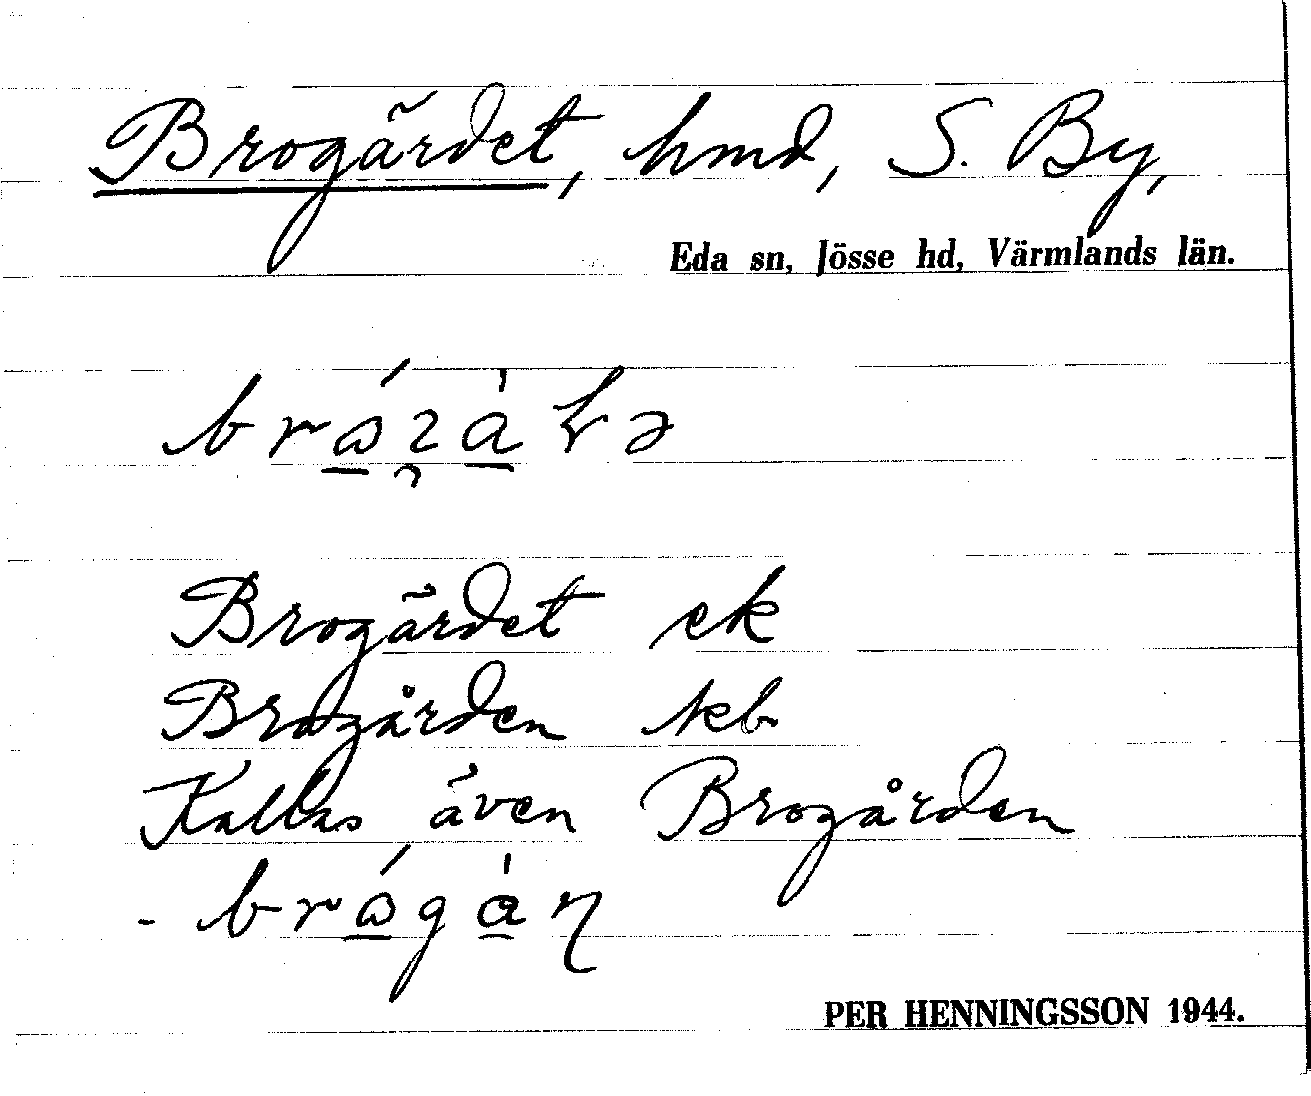 Brogärdet, hmd, S. By,
Eda sn, Jösse hd, Värmlands län.
Brogärdet ek
Brogården kb
Kallas även Brogården
PER HENNINGSSON 1944.